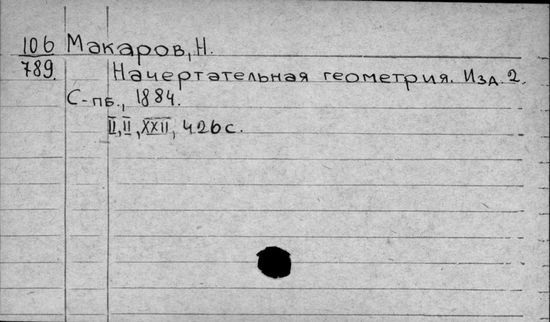 106 Макаров, Н.
789. Начертательная геометрия. Изд. 2.
С-пб., 1884.
II, II, XXII, 426 с.